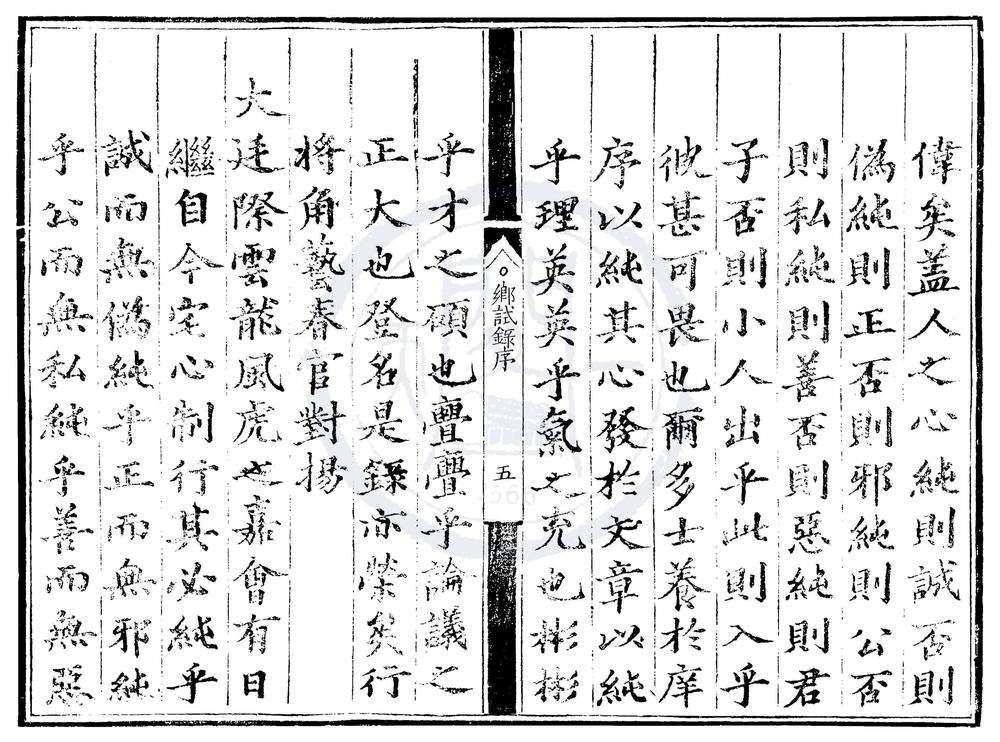 偉矣蓋人之心純則誠否則
僞純則正否則邪純則公否
則私純則善否則惡純則君
子否則小人出乎此則入乎
彼甚可畏也爾多士養於庠
序以純其心發於文章以純
乎理英英乎氣之充也彬彬
鄉試錄序
五
乎才之碩也亹亹乎論議之
正大也登名是錄亦榮矣行
將角藝春官對揚
大廷際雲龍風虎之嘉會有日
繼自今宅心制行其必純乎
誠而無僞純乎正而無邪純
乎公而無私純乎善而無惡